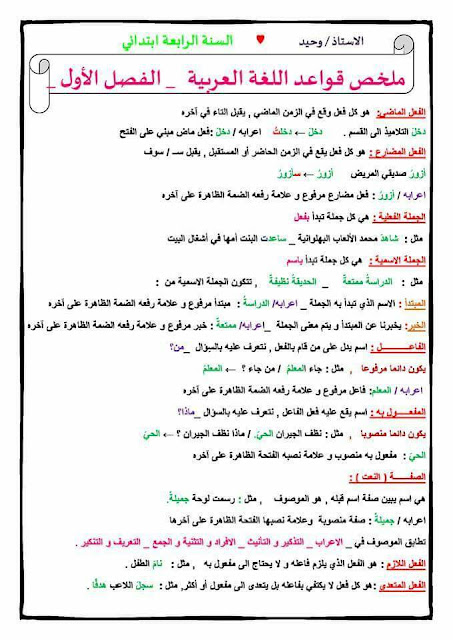 الاستاذ / وحيد ♥ السنة الرابعة ابتدائي
ملخص قواعد اللغة العربية _ الفصل الأول _
الفعل الماضي: هو كل فعل وقع في الزمن الماضي , يقبل التاء في آخره
دخلَ التلاميذ الى القسم . دخلَ ← دخلتُ اعرابه / دخلَ :فعل ماض مبني على الفتح
الفعل المضارع : هو كل فعل يقع في الزمن الحاضر أو المستقبل , يقبل ســ / سوف
أزورُ صديقي المريض أزورُ ← سأزورُ
اعرابه / أزورُ : فعل مضارع مرفوع و علامة رفعه الضمة الظاهرة على آخره
الجملة الفعلية : هي كل جملة تبدأ بفعل
مثل : شاهدَ محمد الألعاب البهلوانية _ ساعدت البنت أمها في أشغال البيت
الجملة الاسمية : هي كل جملة تبدأ باسم
مثل : الدراسةُ ممتعةٌ _ الحديقةُ نظيفةٌ , تتكون الجملة الاسمية من :
المبتدأ : الاسم الذي تبدأ به الجملة _ اعرابه/ الدراسةُ : مبتدأ مرفوع و علامة رفعه الضمة الظاهرة على آخره
الخبر: يخبرنا عن المبتدأ و يتم معنى الجملة _اعرابه/ ممتعةٌ : خبر مرفوع و علامة رفعه الضمة الظاهرة على آخره
الفاعـــــــل : اسم يدل على من قام بالفعل , نتعرف عليه بالسؤال _من؟
يكون دائما مرفوعا , مثل : جاء المعلمُ / من جاء ؟ ← المعلمُ
اعرابه / المعلمُ: فاعل مرفوع و علامة رفعه الضمة الظاهرة على آخره
المفعـــــول به : اسم يقع عليه فعل الفاعل , نتعرف عليه بالسؤال _ماذا؟
يكون دائما منصوبا , مثل : نظف الجيران الحيَ. / ماذا نظف الجيران ؟ ← الحيَ
الحيَ : مفعول به منصوب و علامة نصبه الفتحة الظاهرة على آخره
الصفـــــة ( النعت ) :
هي اسم يبين صفة اسم قبله , هو الموصوف , مثل : رسمت لوحة جميلةً.
اعرابه / جميلةً : صفة منصوبة وعلامة نصبها الفتحة الظاهرة على آخرها
تطابق الموصوف في _ الاعراب _ التذكير و التأنيث _ الافراد و التثنية و الجمع _ التعريف و التنكير .
الفعل اللازم : هو الفعل الذي يلزم فاعله و لا يحتاج الى مفعول به , مثل : نامَ الطفل .
الفعل المتعدي : هو كل فعل لا يكتفي بفاعله بل يتعدى الى مفعول أو أكثر, مثل : سجلَ اللاعب هدفًا .